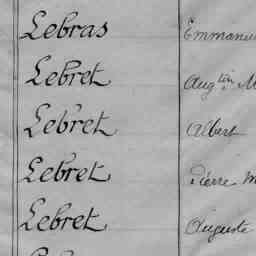 Lebras Emmanuel
Lebret Augtin M
Lebret Albert
Lebret Pierre M
Lebret Auguste